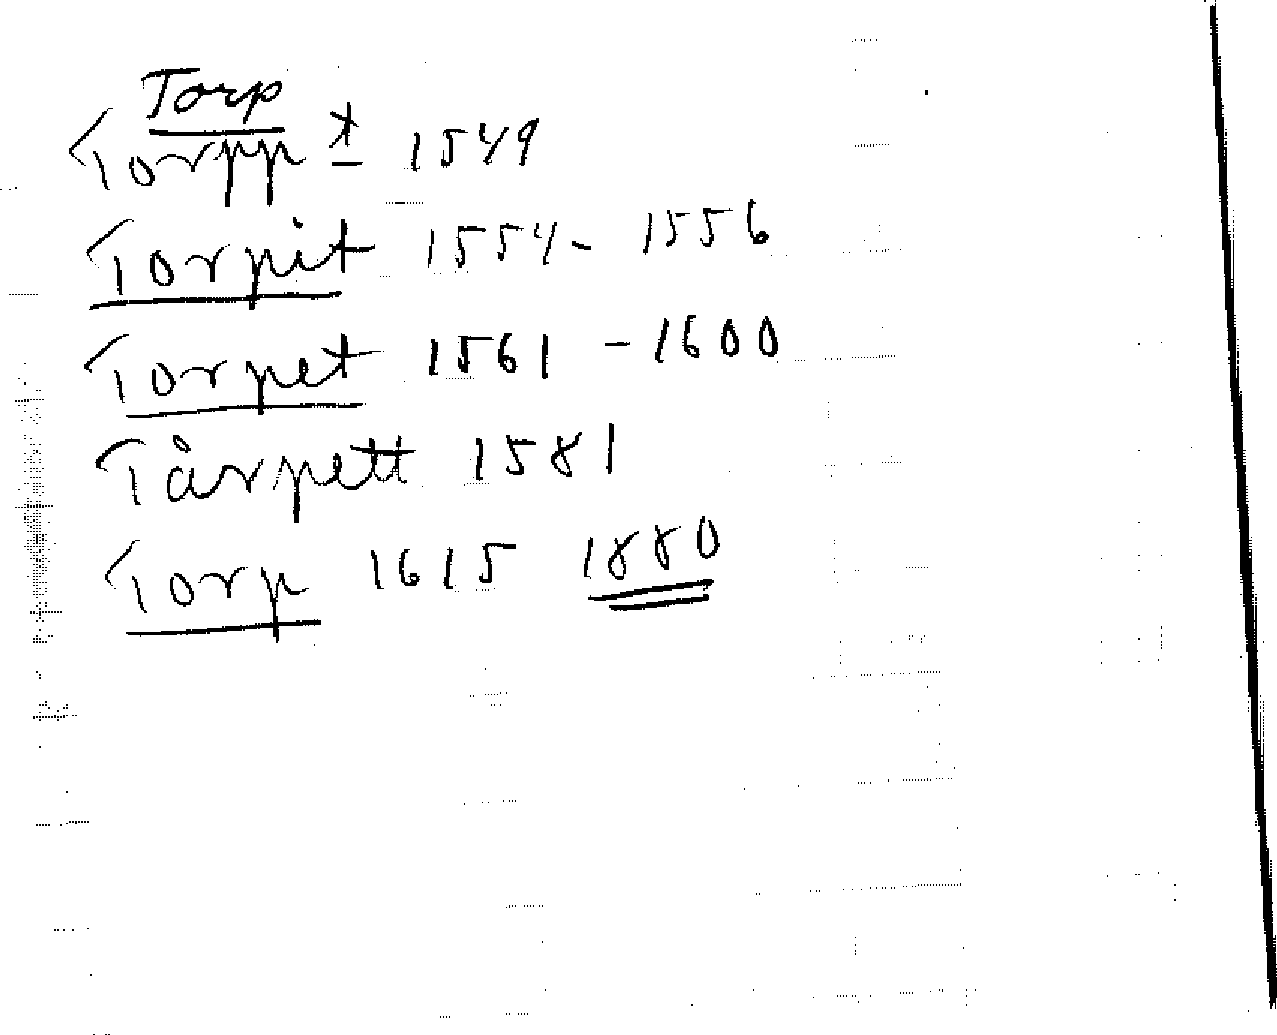 Torp
Torpp ± 1549
Torpit 1554 - 1556
Torpet 1561 - 1600
Tårpett 1581
Torp 1615 1880